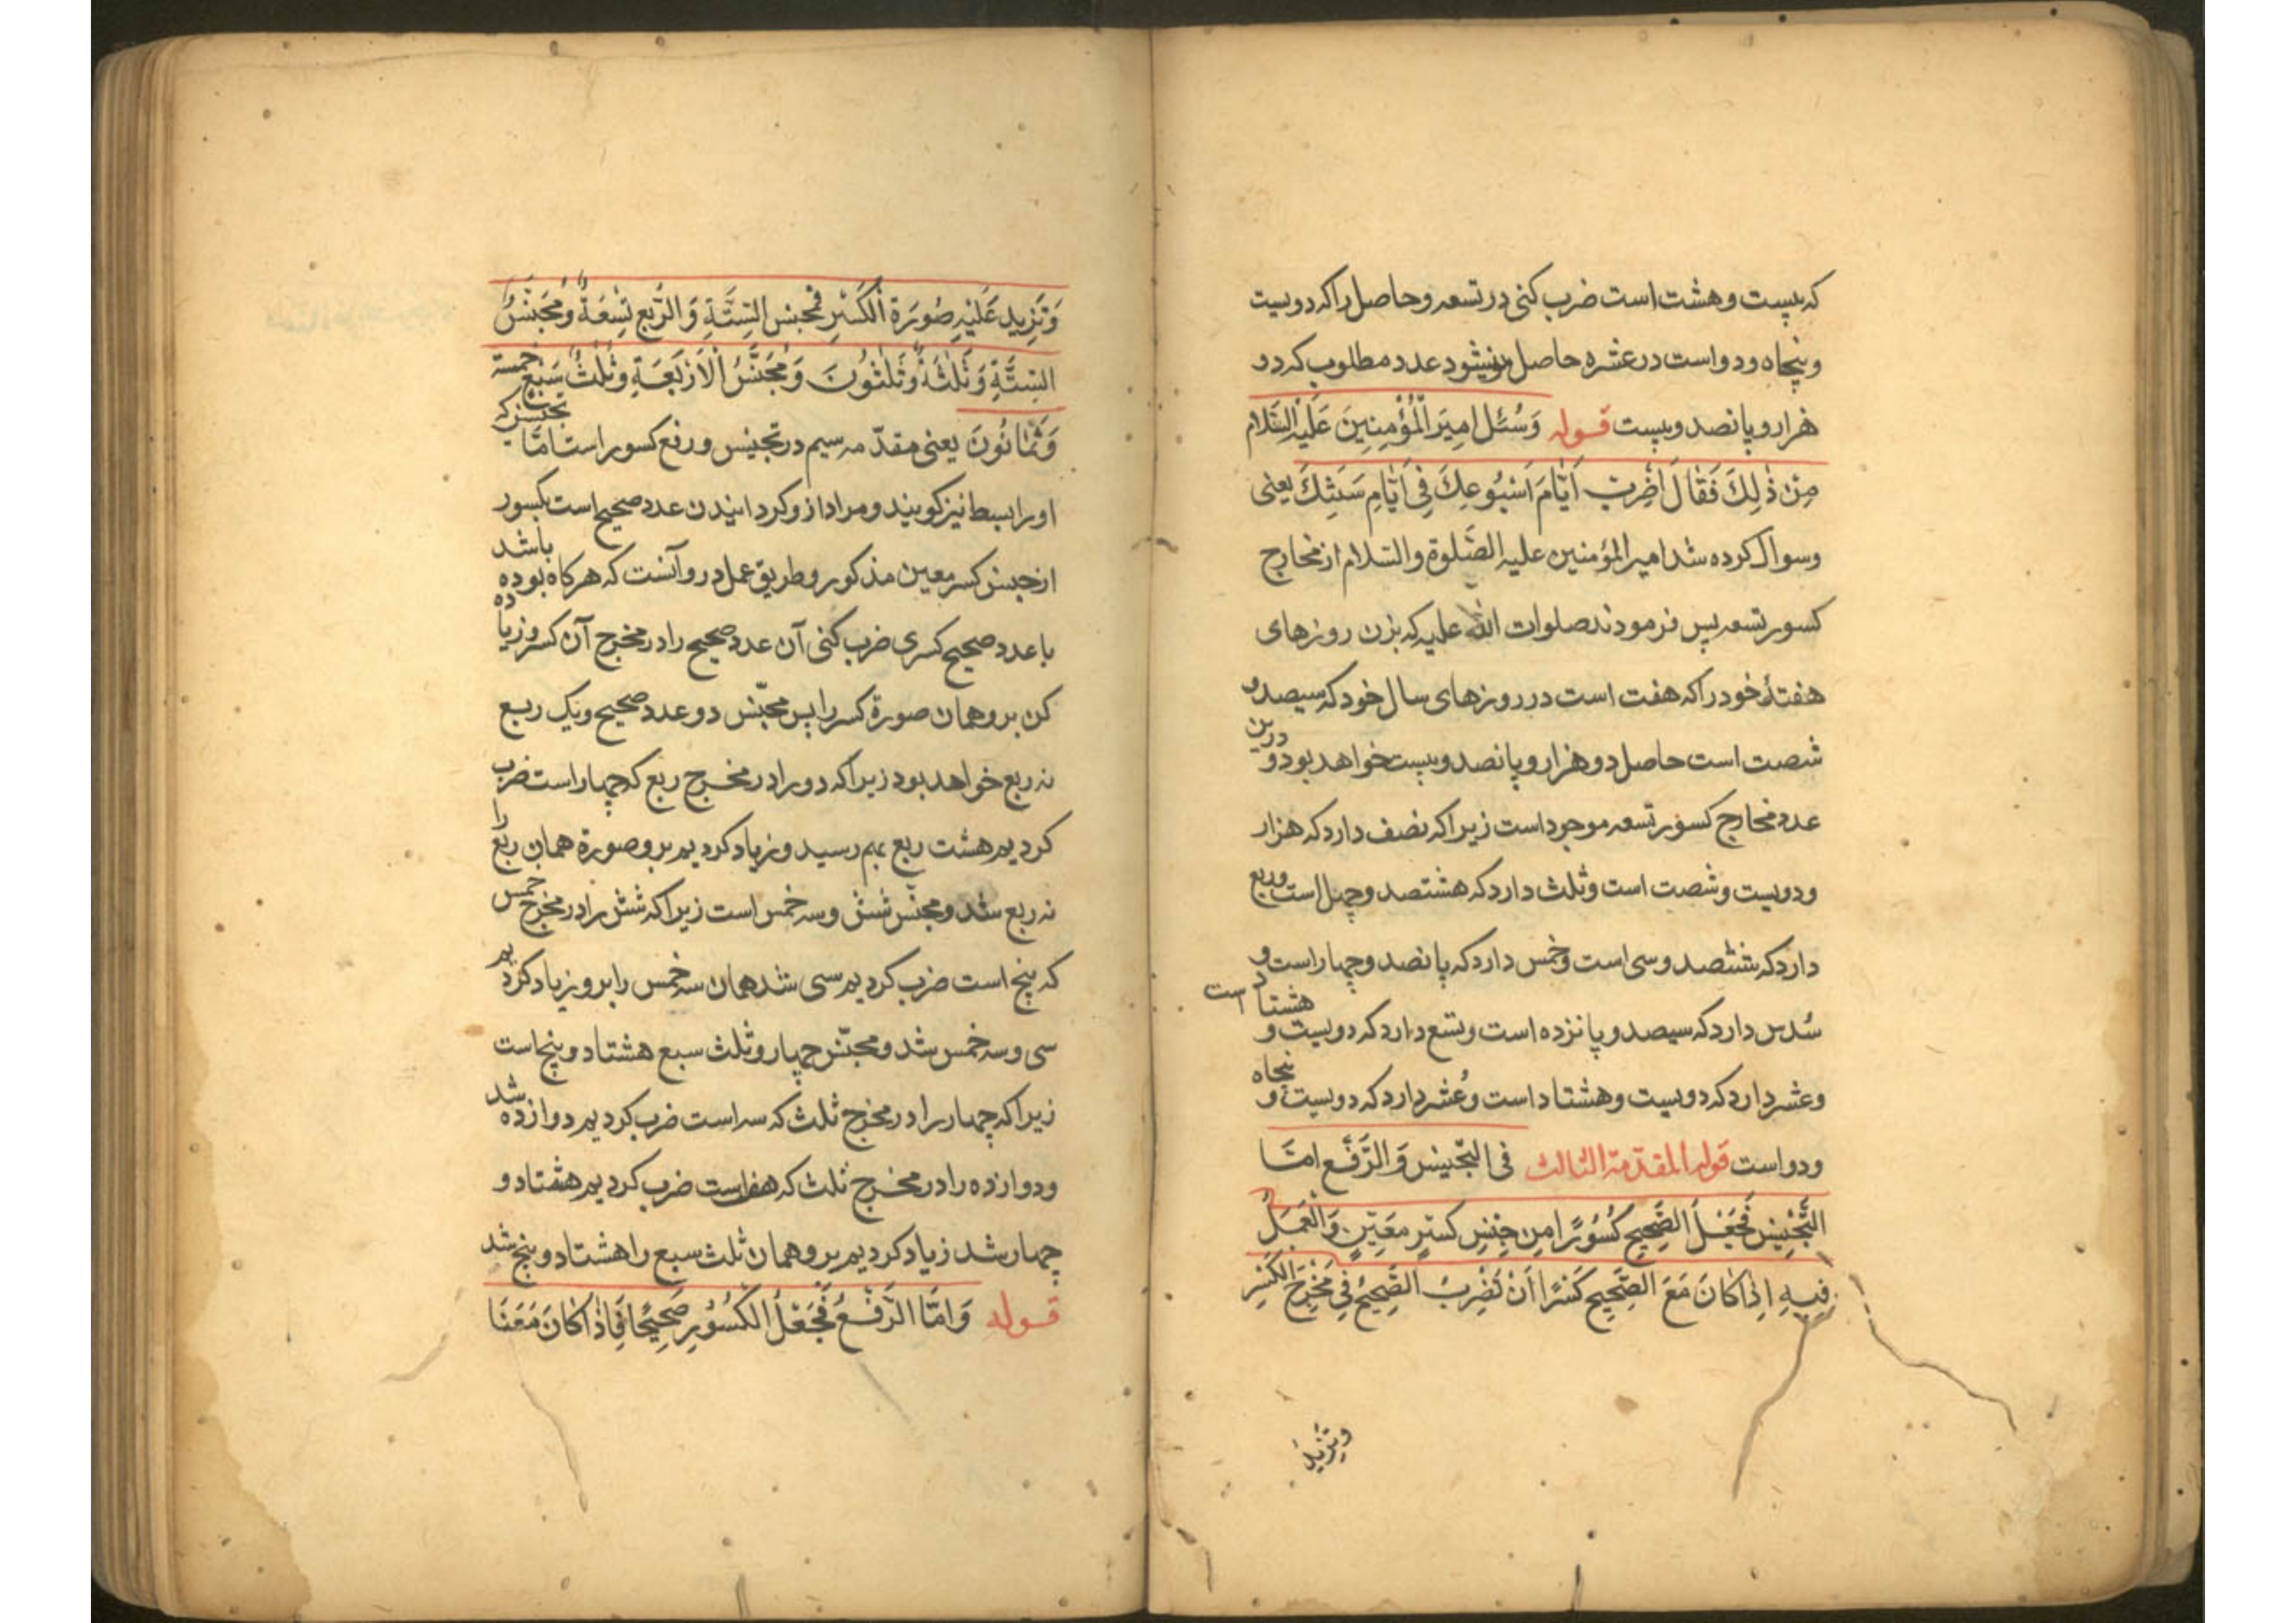 که بیست و هشت است ضرب کنی در تسعه و حاصل را که دویست
و پنجاه و دو است در عشره حاصل میشود عدد مطلوب که دو
هزار و پانصد و بیست قوله وَسُئِلَ امِيَر الْمُؤْمِنِينَ عَلَيْهِ السَّلَام
مِنْ ذٰلِكَ فَقٰالَ اضْرِبْ اَيّٰامَ اُسْبُوعِكَ فِى اَيّٰامِ سَنَتِكَ يعنى
و سوال کرده شد امیر المؤمنین علیه الصّلوة و السّلام از مخارج
کسور تسعه پس فرمودند صلوات الله علیه که بزن روزهای
هفتهٔ خود را که هفت است در روزهای سال خود که سیصد و
شصت است حاصل دو هزار و پانصد و بیست خواهد بود و درین
عدد مخارج کسور تسعه موجود است زیرا که نصف دارد که هزار
و دویست و شصت است و ثلث دارد که هشتصد و چهل است و ربع
دارد که ششصد و سی است و خمس دارد که پانصد و چهار است و
سُدس دارد که سیصد و پانزده است و تسع دارد که دویست و هشتاد است
و عشر دارد که دویست و هشتاد است و عُشر دارد که دویست و پنجاه
و دو است قوله المقدّمة الثالث فى التّجنيس وَ الرَّفْع امّا
التَّجْنِيسُ فَجَعْلُ الصَّحِيحِ كُسُوْرًا مِن جِنْسِ كَسْرٍ مُعَيَّنٍ وَالْعَمَلُ
فِيهِ اِذٰا كٰانَ مَعَ الصَّحِيحِ كَسْرًا اَنْ تَضْرِبَ الصَّحِيحَ فِى مَخْرَجِ الكَسْرِ
وتزید
وَتَزِيدَ عَلَيْهِ صُورَةَ الْكَسْرِ فمجنس السِتَّةِ وَ الرُّبع تِسْعَةٌ وَمُجَنَّسُ
السِتَّةِ وَثَلٰثَةٌ وَثَلٰثُونَ وَمُجَنَّسُ الْاَرْبَعَةِ وَثُلْثُ سَبْعٍ خمسة
وَثَمٰانُونَ یعنی مقدّمه سیم در تجنیس و رفع کسور است امّا تجنیس که
او را بسط نیز گویند و مراد ازو گردانیدن عدد صحیح است بکسور
از جنس کسر معین مذکور و طریق عمل درو آنست که هر گاه بوده باشد
با عدد صحیح کسری ضرب کنی آن عدد صحیح را در مخرج آن کسر و زیاده
کن برو همان صورة کسر را پس مجنّس دو عدد صحیح و یک ربع
نه ربع خواهد بود زیرا که دو را در مخرج ربع که چهار است ضرب
کردیم هشت ربع بهم رسید و زیاد کردیم برو صورة همان ربع را
نه ربع شد و مجنّس شش و سه خمس است زیرا که شش را در مخرج خمس
که پنج است ضرب کردیم سی شد همان سه خمس را برو زیاد کردیم
سی و سه خمس شد و مجنّس چهار و ثلث سبع هشتاد و پنج است
زیرا که چهار را در مخرج ثلث که سه است ضرب کردیم دوازده شد
و دوازده را در مخرج ثلث که هفت است ضرب کردیم هشتاد و
چهار شد زیاد کردیم برو همان ثلث سبع را هشتاد و پنج شد
قوله وَامَّا الرَّفْعُ فَجَعْلُ الْكُسُوْرِ صَحِيْحًا فَاِذٰا كٰانَ مَعَنَا